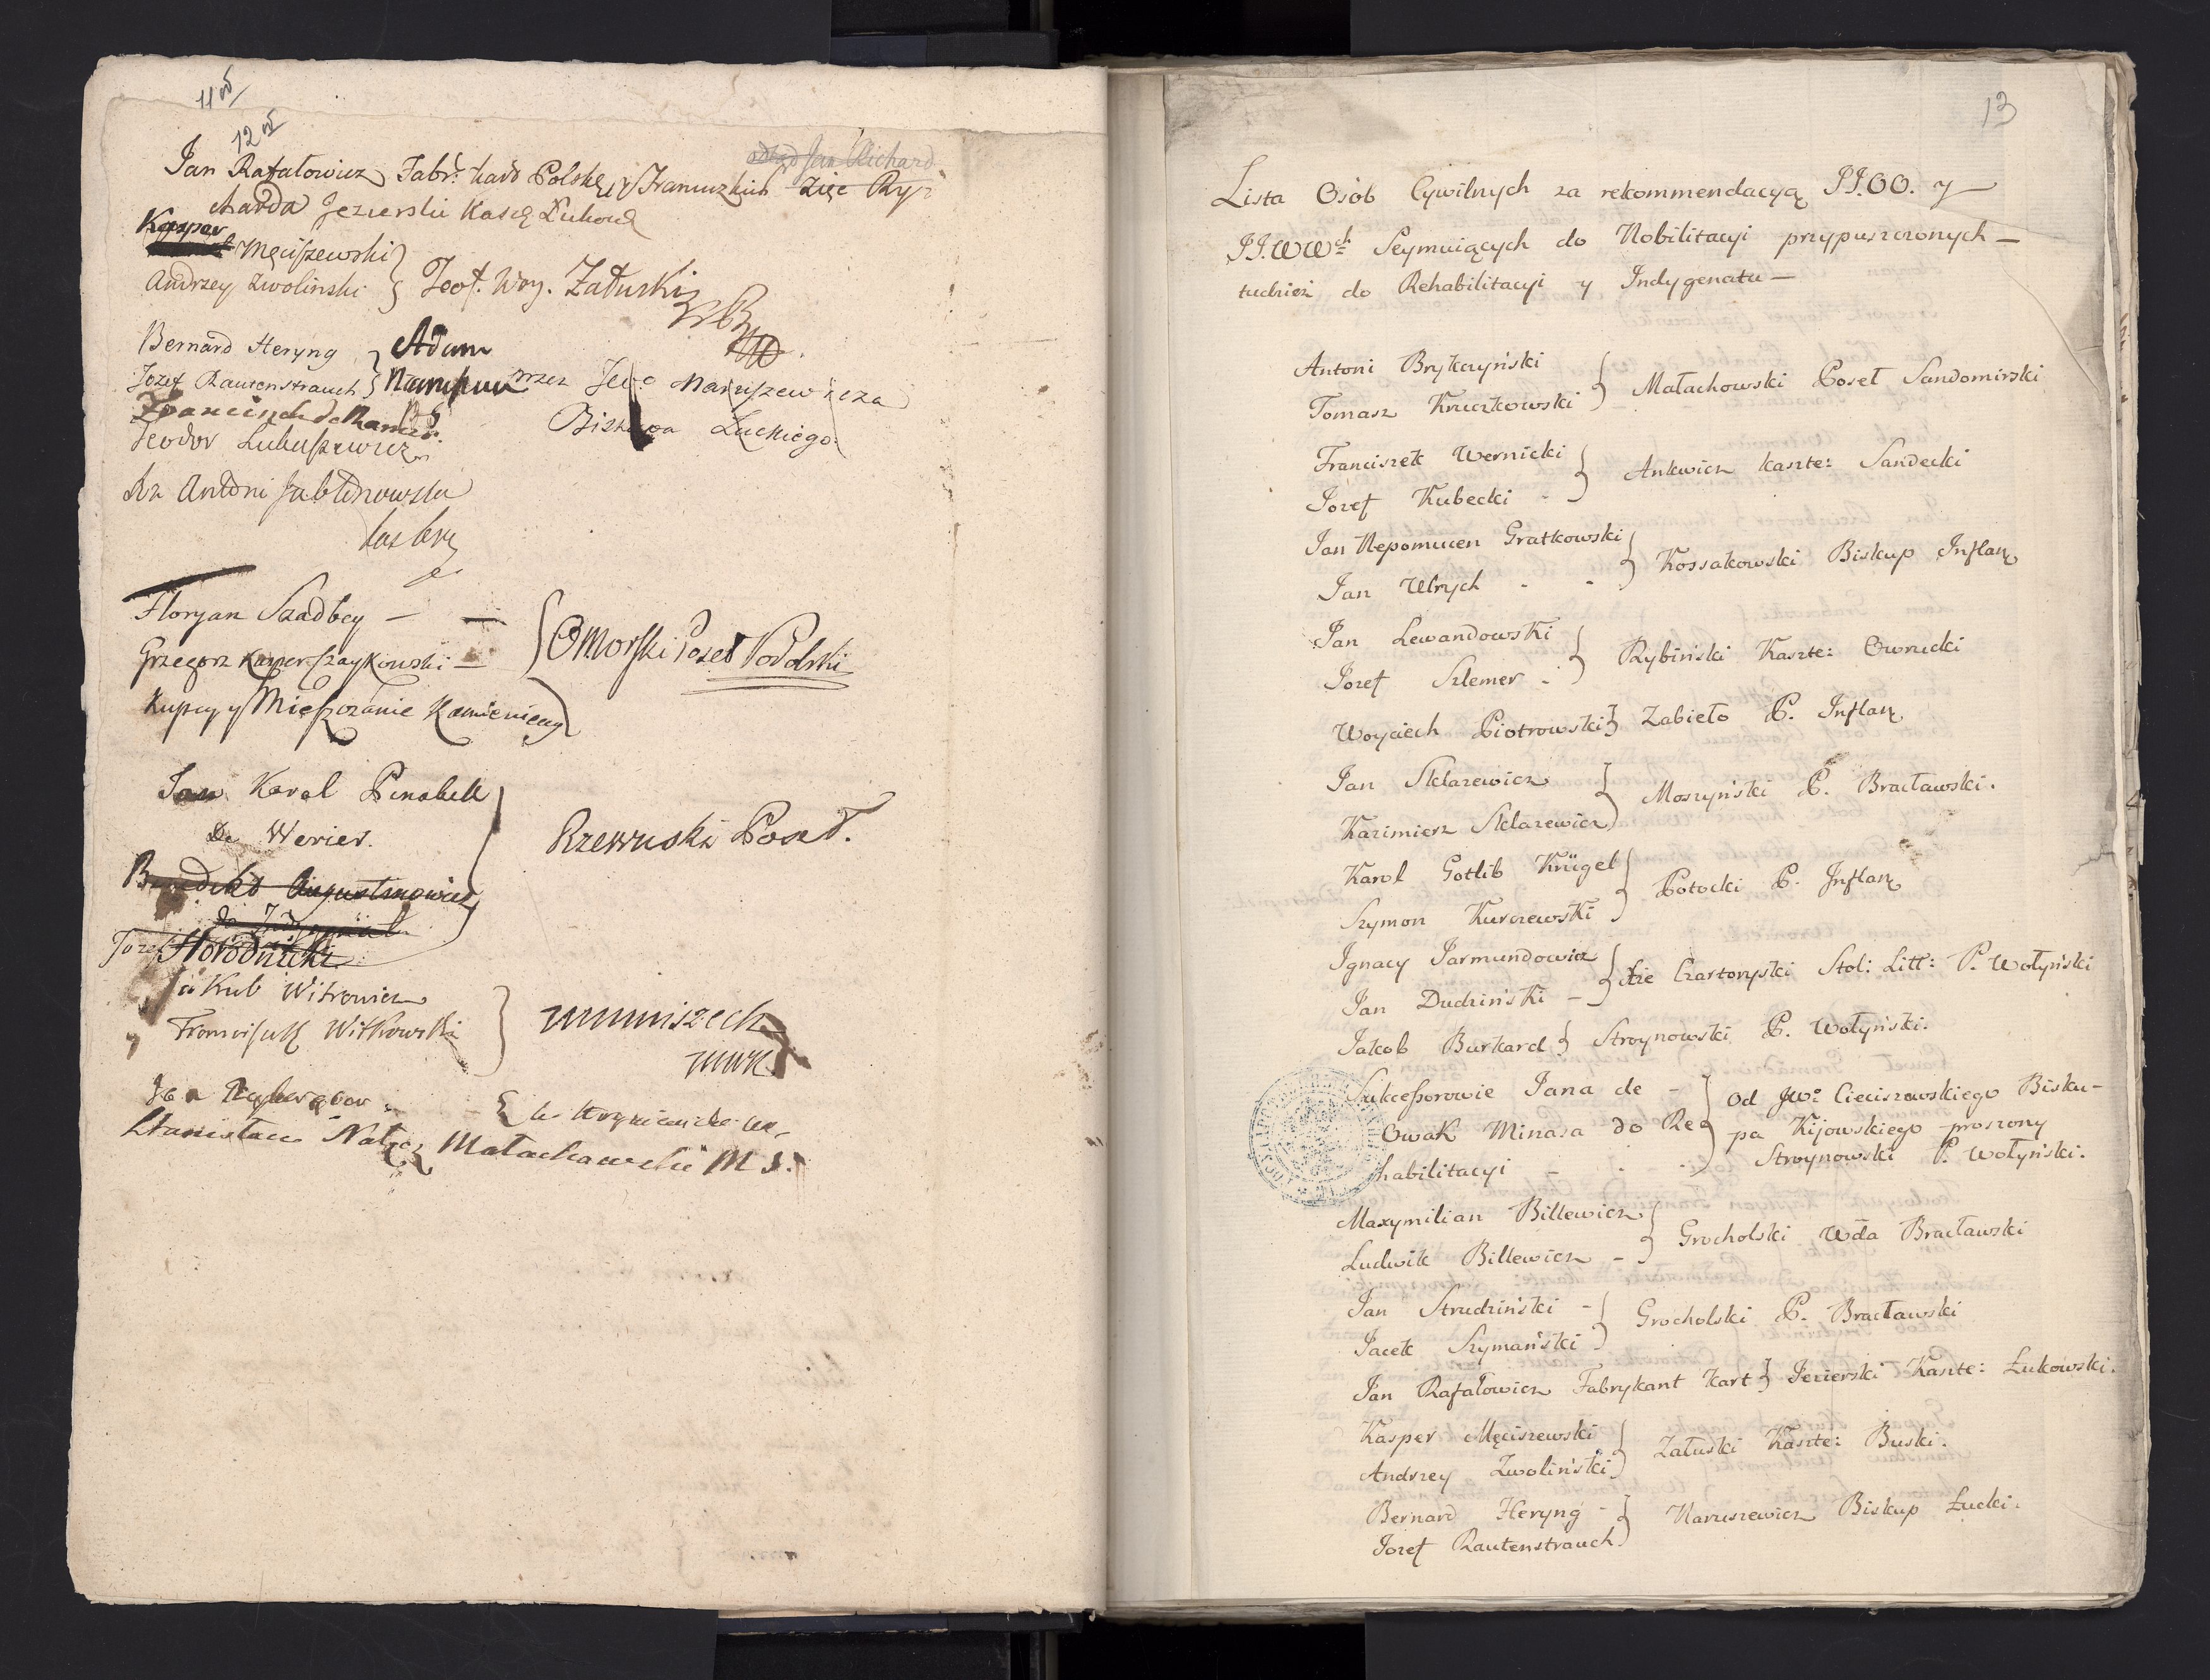 11
12
Jan Rafałowicz Fabr: kard Polskę y Francuzkich Zięc Ry-
charda Jezierski Kaszę Łukows
Kasper
Męciszewski
Andrzey Zwolinski } Teof. Woy. Załuski
Bernard Heryng } Adam
Jozef Rautenstrauch } Naruszew przez Jego Naruszewicza
Biskupa Łuckiego
Teodor Lubaszewicz
Xże Antoni Jabłonowski
kas krs
Floryan Szadbey —
Grzegorz Kasper Czaykowski —
{ Omorski Poseł Podolski
Kupcy y Mieszczanie Kamienieccy
Jan Karol Pinabell
De Werier.
Rzewuski Poseł.
Benedykt Augustinowicz
Jozef Horodnicki
Jakub Witrowicz
y Franciszek Witkowski
} Mniszech
MWK
Stanisław Nałęcz Małachowski M S.
13
Lista Osób Cywilnych za rekommendacyą JJ.OO. y
JJ.WWch Seymuiących do Nobilitacyi przypuszczonych —
tudzież do Rehabilitacyi y Indygenatu —
Antoni Brykczyński
Tomasz Kruczkowski } Małachowski Poseł Sandomirski
Franciszek Wernicki
Jozef Kubecki - } Ankwicz Kaszte: Sandecki
Jan Nepomucen Gratkowski
Jan Ulrych - - } Kossakowski Biskup Inflan
Jan Lewandowski
Jozef Szlemer - } Rybiński Kaszte: Owrucki
Woyciech Piotrowski } Zabiełło P. Inflan
Jan Sklarewicz
Kazimierz Sklarewicz } Moszyński P. Bracławski.
Karol Gotlib Krügel
Szymon Kurczewski } Potocki P. Inflan
Ignacy Jarmundowicz
Jan Dudziński - } Xże Czartoryski Stol: Litt: P. Wołyński
Jakob Burkard } Stroynowski P. Wołyński.
Sukcessorowie Jana de -
Owak Minasa do Re
habilitacyi - - -
} Od JWo Cieciszewskiego Bisku-
pa Kijowskiego proszony
Stroynowski P. Wołyński.
Maxymilian Billewicz
Ludwik Billewicz - } Grocholski Wda Bracławski
Jan Strudziński -
Jacek Szymański } Grocholski P. Bracławski
Jan Rafałowicz Fabrykant Kart } Jezierski Kaszte: Łukowski.
Kasper Męciszewski
Andrzey Zwoliński } Załuski Kaszte: Buski.
Bernard Heryng -
Jozef Rautenstrauch } Naruszewicz Biskup Łucki.